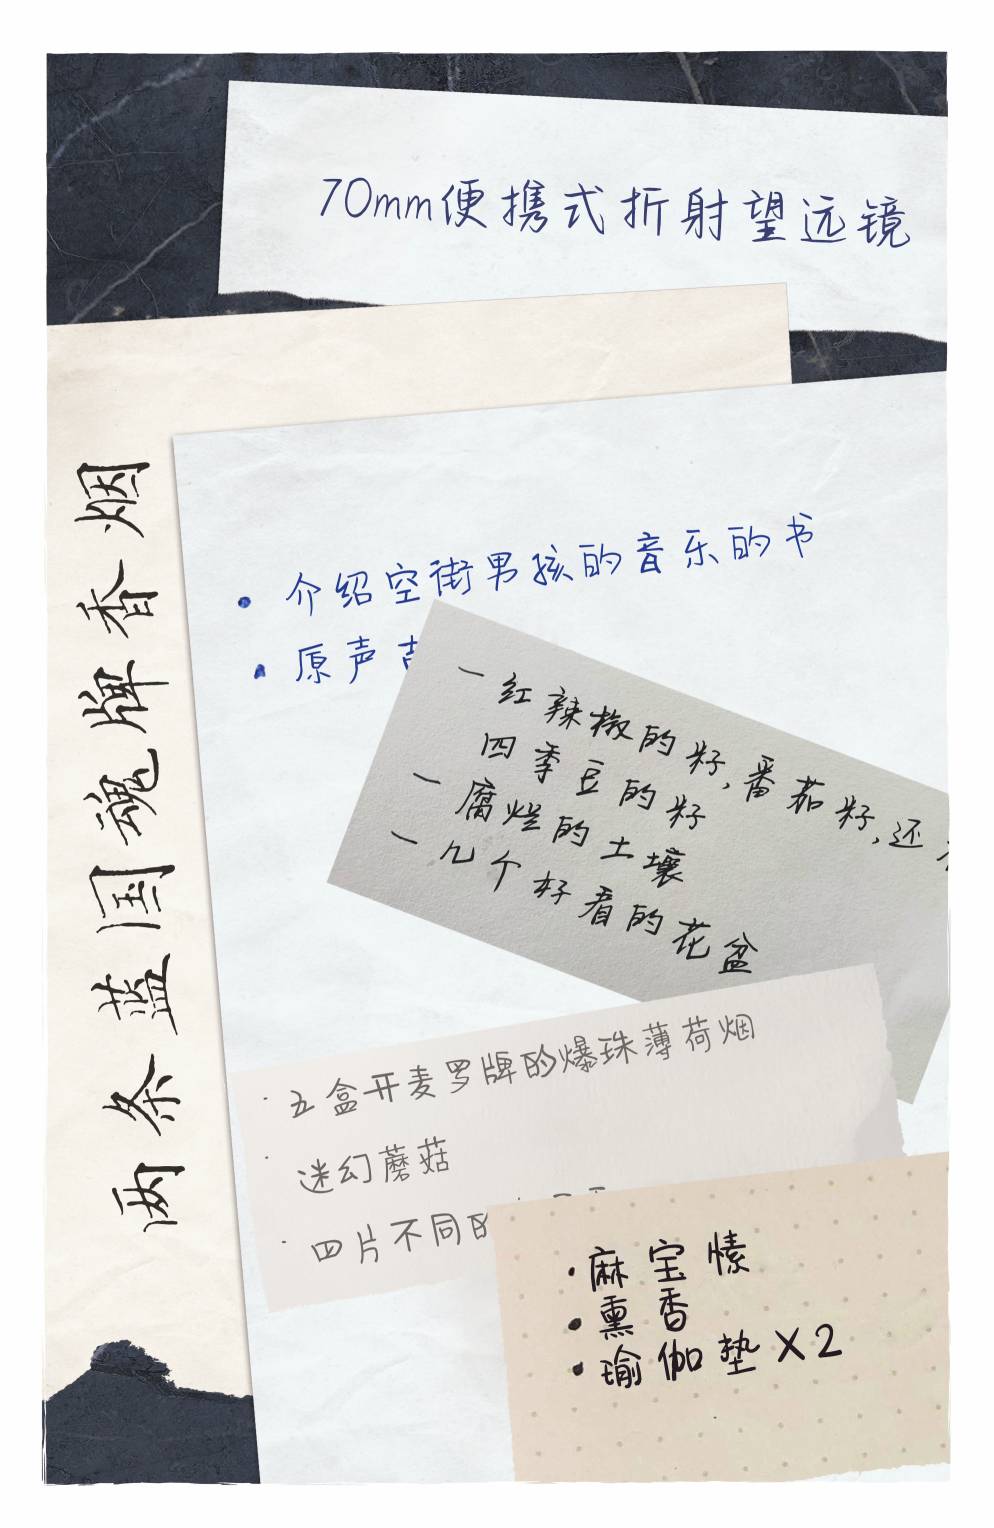 70mm便携式折射望远镜
两条蓝国魂牌香烟
• 介绍空街男孩的音乐的书
• 原声
一 红辣椒的籽,番茄籽,还
四季豆的籽
一 腐烂的土壤
一 几个好看的花盆
· 五盒开麦罗牌的爆珠薄荷烟
· 迷幻蘑菇
· 四片不同
· 麻宝愫
• 熏香
• 瑜伽垫 X2